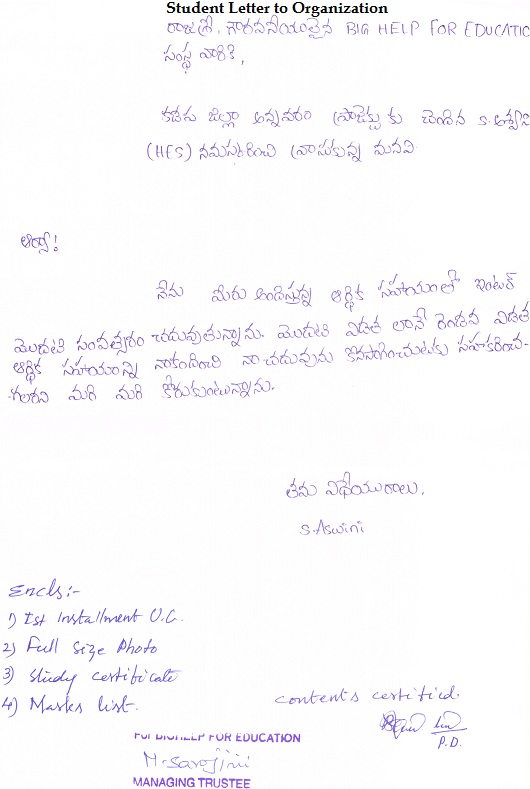 Student Letter to Organization
రాజశ్రీ. గౌరవనీయులైన BIG HELP FOR EDUCATIC
సంస్థ వారికి,
కడప జిల్లా అన్నవరం ప్రాజెక్టు కు చెందిన S. అశ్విని
(HES) నమస్కరించి వ్రాసుకున్న మనవి.
ఆర్యా!
నేను మీరు అందిస్తున్న ఆర్థిక సహాయంతో ఇంటర్
మొదటి సంవత్సరం చదువుతున్నాను. మొదటి విడత లానే రెండవ విడత
ఆర్థిక సహాయాన్ని నాకందించి నా చదువును కొనసాగించుటకు సహకరించ-
గలరని మరి మరి కోరుకుంటున్నాను.
తమ విధేయురాలు,
S. Aswini
Encls:-
1) Ist Installment U.C.
2) Full size Photo
3) Study certificate
4) Marks list.
contents certified.
P.D.
For BIGHELP FOR EDUCATION
M. Sarojini
MANAGING TRUSTEE